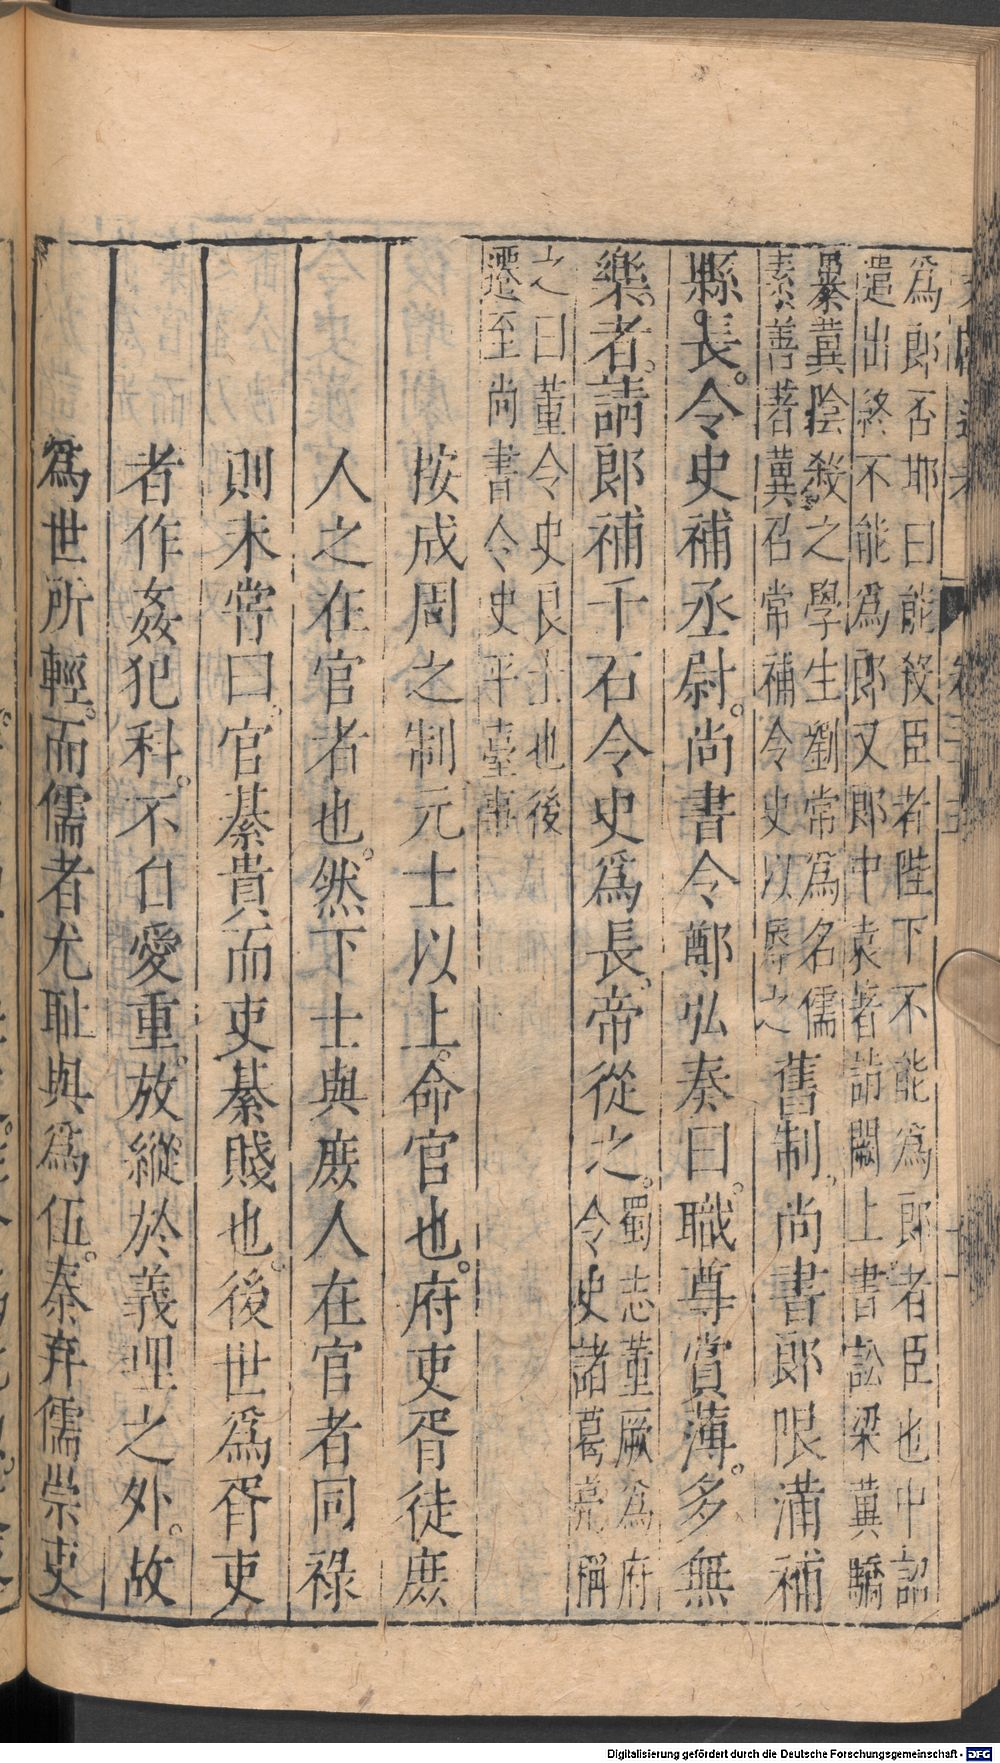 爲郎否耶曰能殺臣者陛下不能爲郎者臣也中詔
遣出終不能爲郎又郎中袁著詣闕上書訟梁冀驕
暴冀陰殺之學生劉常爲名儒
素善著冀召常補令史以辱之
舊制尚書郎限滿補
縣長令史補丞尉尚書令鄭弘奏曰職尊賞薄多無
樂者請郎補千石令史爲長帝從之
蜀志董厥爲府
令史諸葛亮稱
之曰董令史良士也後
遷至尚書令史平臺事
按成周之制元士以上命官也府吏胥徒庶
人之在官者也然下士與庶人在官者同祿
則未嘗曰官綦貴而吏綦賤也後世爲胥吏
者作姦犯科不自愛重放縱於義理之外故
爲世所輕而儒者尤耻與爲伍秦弃儒崇吏
Digitalisierung gefördert durch die Deutsche Forschungsgemeinschaft - DFG